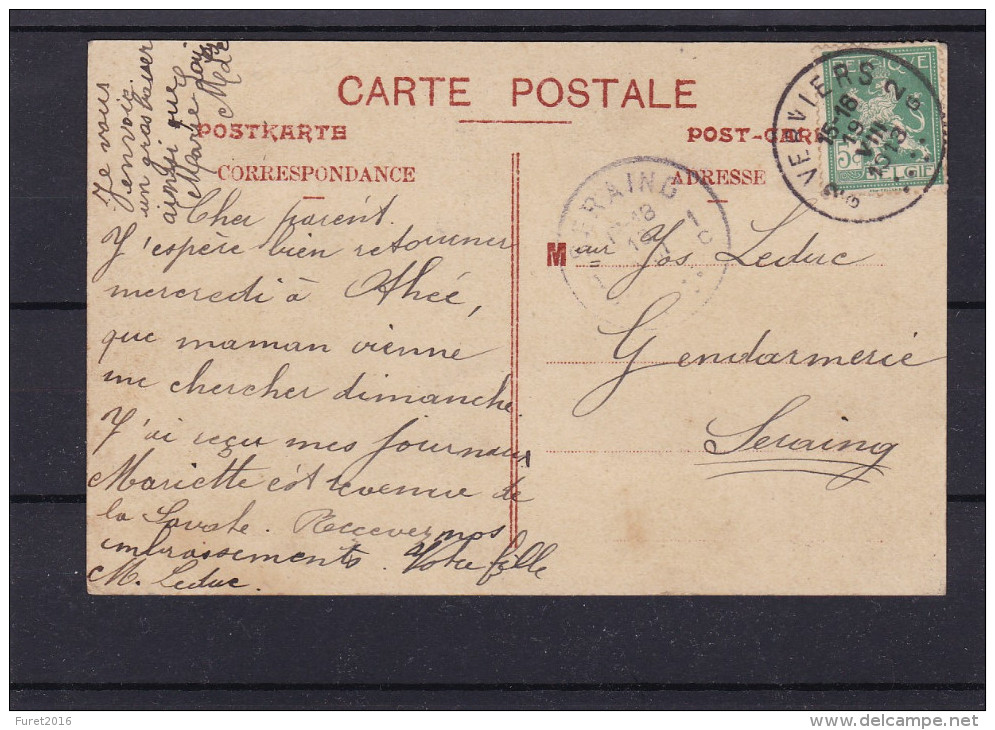 CARTE POSTALE
POSTKARTE
POST-CARD
CORRESPONDANCE
ADRESSE
Je vous
envoie
un gros baiser
ainsi que
Marie
Cher parent.
J'espère bien retourner
mercredi à Ahée,
que maman vienne
me chercher dimanche.
J'ai reçu mes journaux
Mariette est revenue de
la Savate. Recevez nos
embrassements. Votre fille
M. Leduc.
Mʳ Jos Leduc
Gendarmerie
Seraing
VERVIERS 2
15-16
19
VIII
1913
BELGIQUE
5c
BELGIË
SERAING 1
Furet2016
delcampe.net